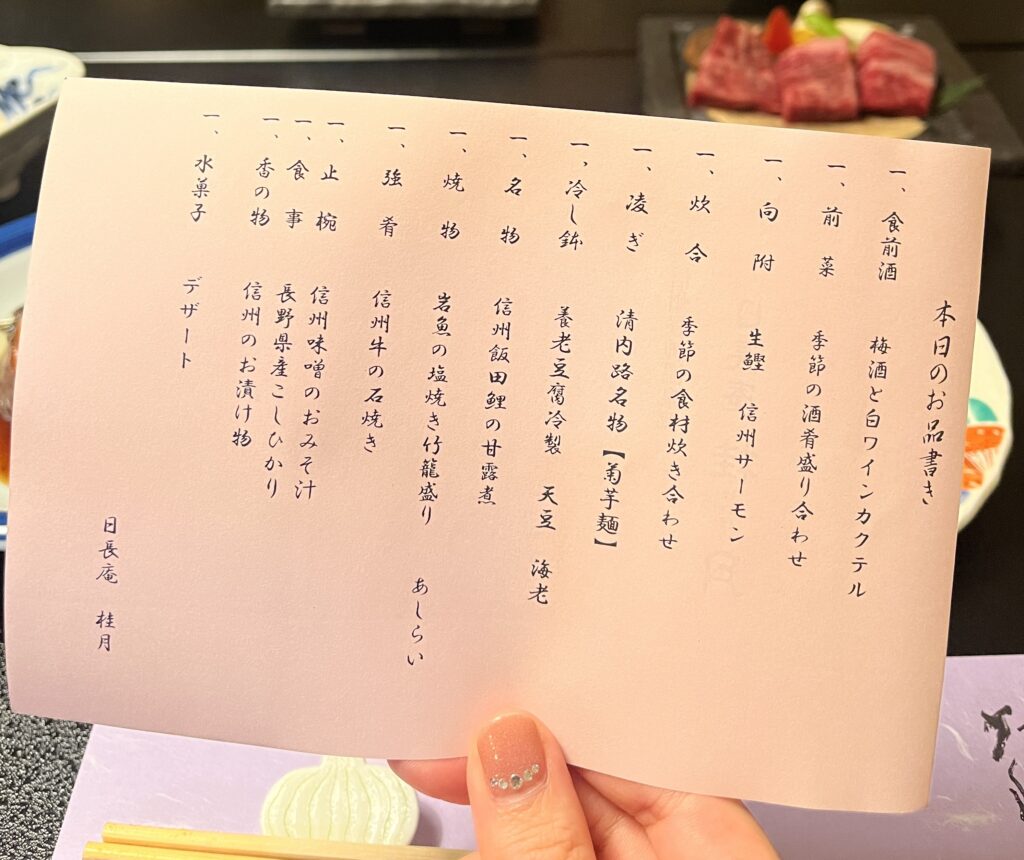 本日のお品書き
一、食前酒　梅酒と白ワインカクテル
一、前菜　季節の酒肴盛り合わせ
一、向附　生鰹　信州サーモン
一、炊合　季節の食材炊き合わせ
一、凌ぎ　清内路名物【菊芋麺】
一、冷し鉢　養老豆腐冷製　天豆　海老
一、名物　信州飯田鯉の甘露煮
一、焼物　岩魚の塩焼き竹籠盛り　あしらい
一、強肴　信州牛の石焼き
一、止椀　信州味噌のおみそ汁
一、食事　長野県産こしひかり
一、香の物　信州のお漬け物
一、水菓子　デザート
日長庵　桂月